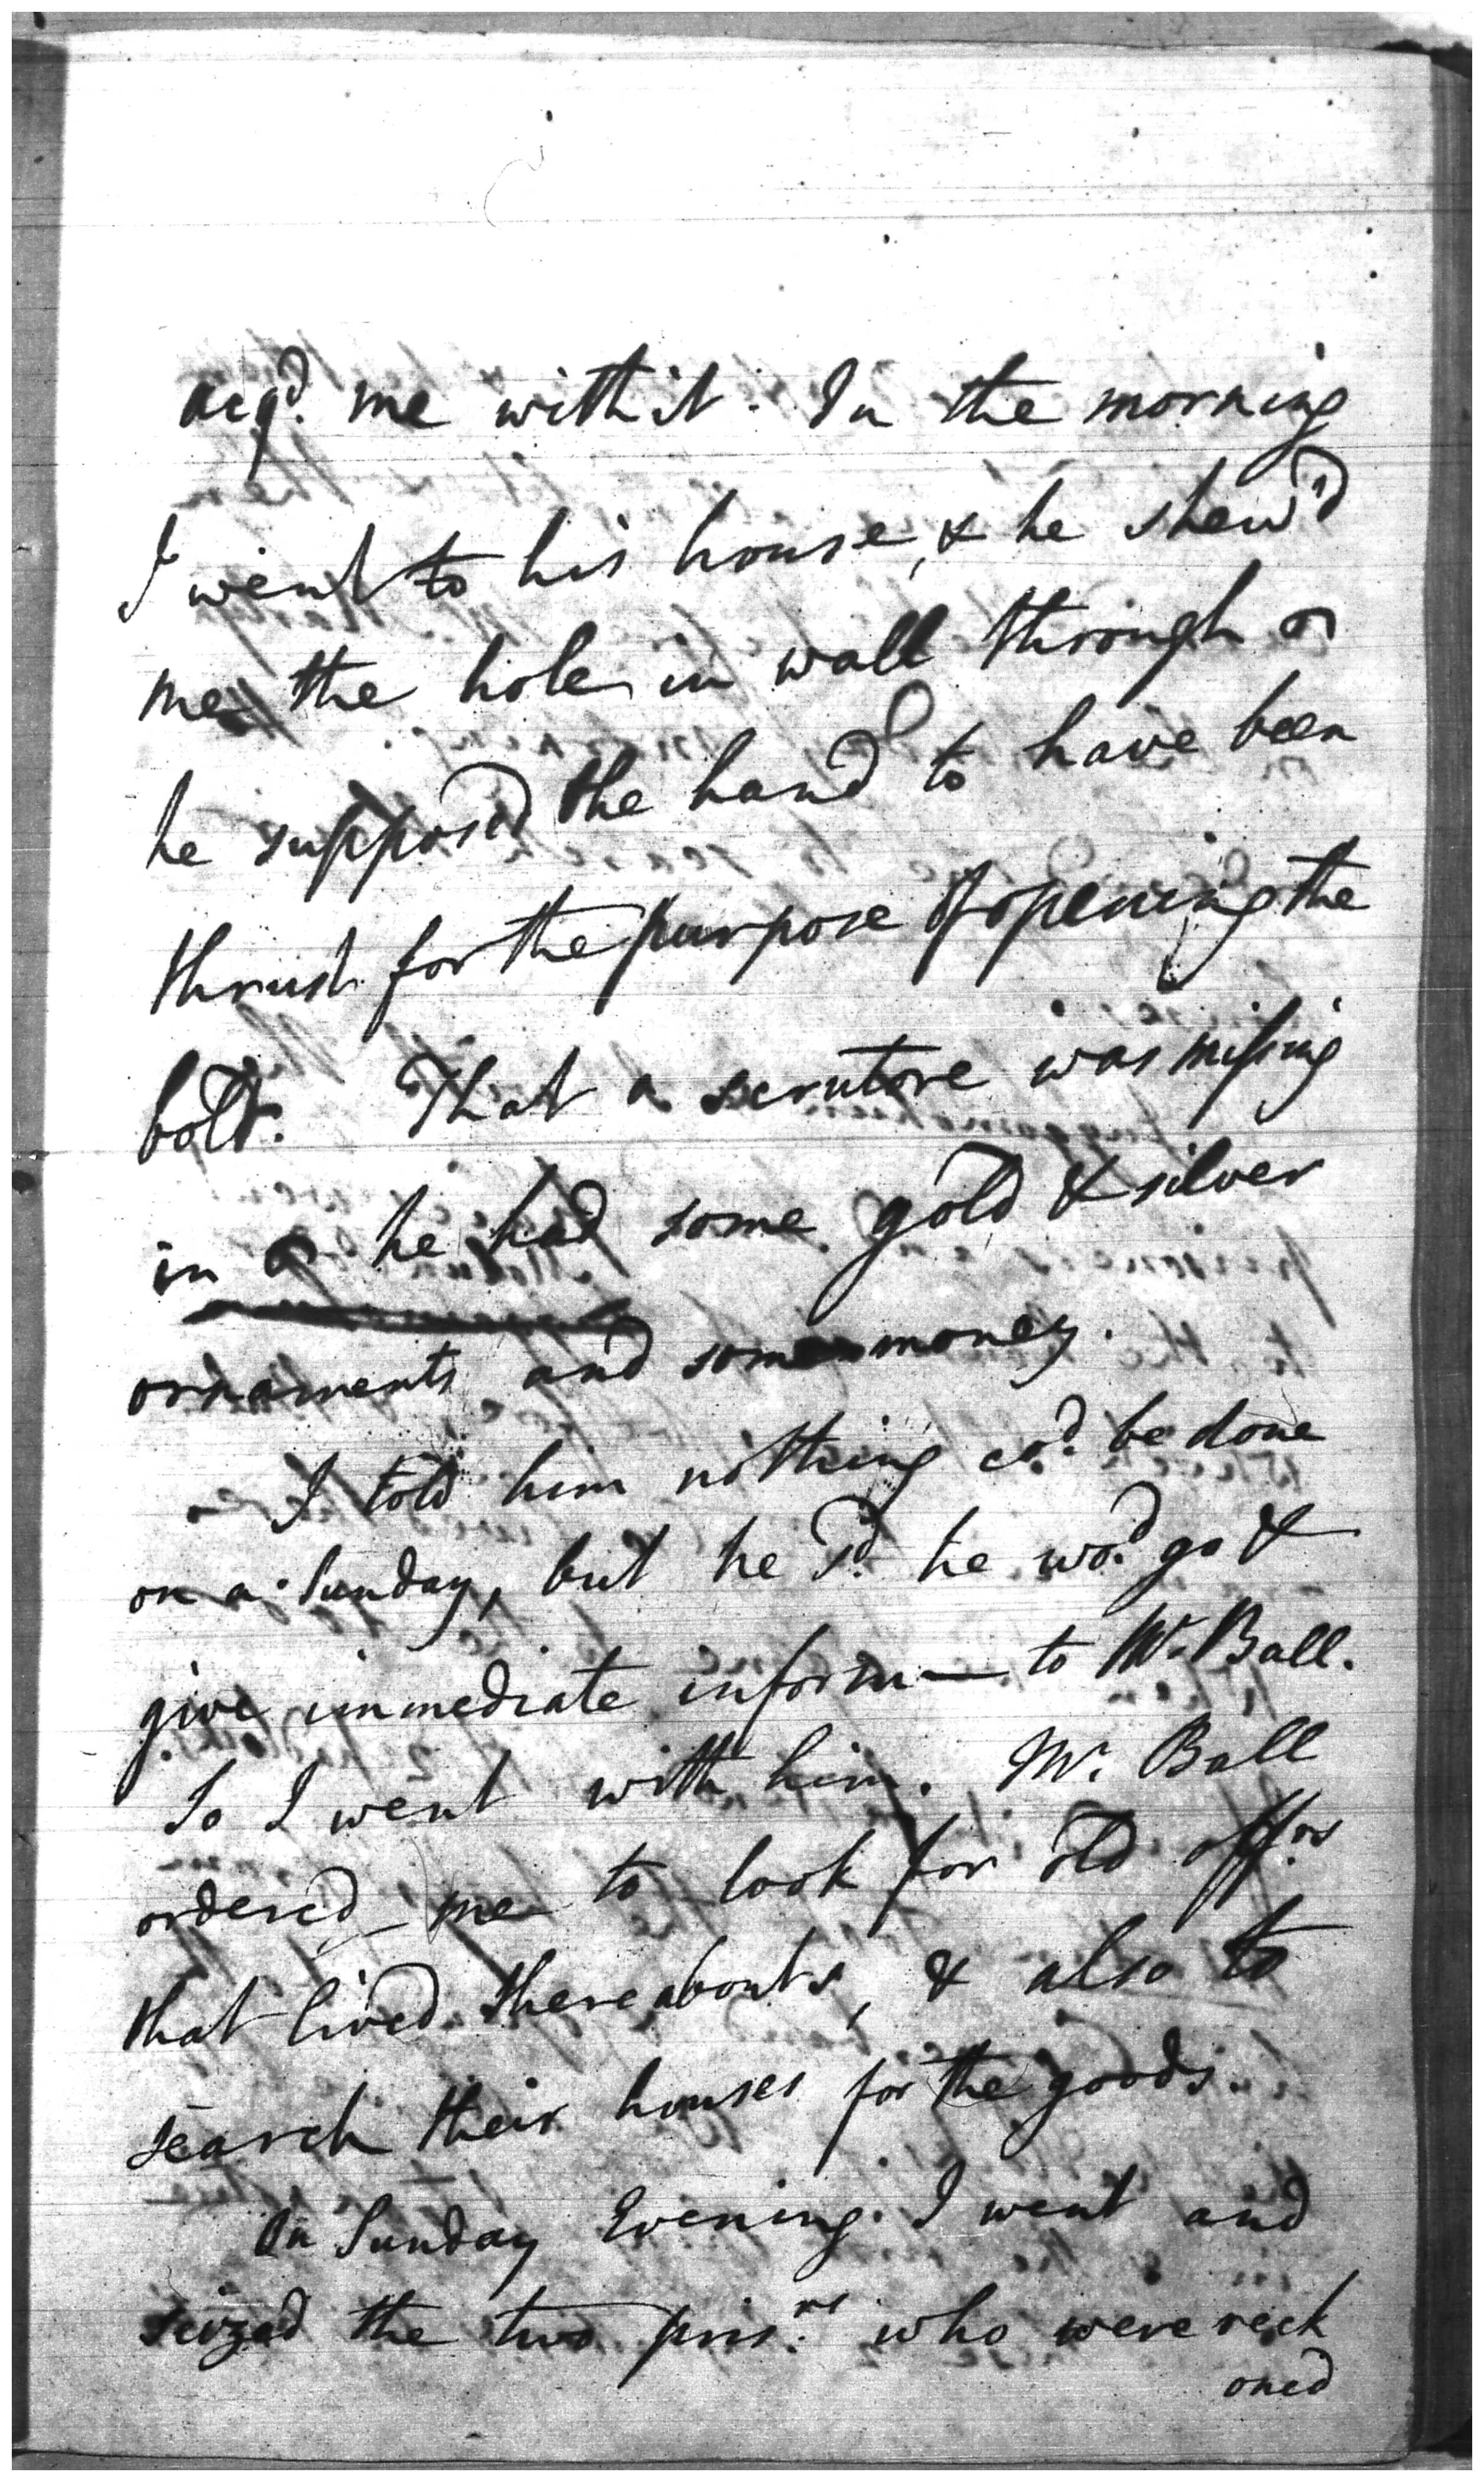 acqd. me with it. In the morning
I went to his house, & he shew'd
me the hole in wall through
he supposed the hand to have been
thrust for the purpose of opening the
bolt. That a scrutore was missing
in he had some gold & silver
ornaments and some money.
I told him nothing cod. be done
on a Sunday, but he sd. he wod. go &
give immediate inform— to Mr. Ball.
So I went with him. Mr. Ball
ordered me to look for old offrs
that lived thereabouts, & also to
search their houses for the goods.
On Sunday Evening. I went and
seized the two prisrs. who were reck
oned